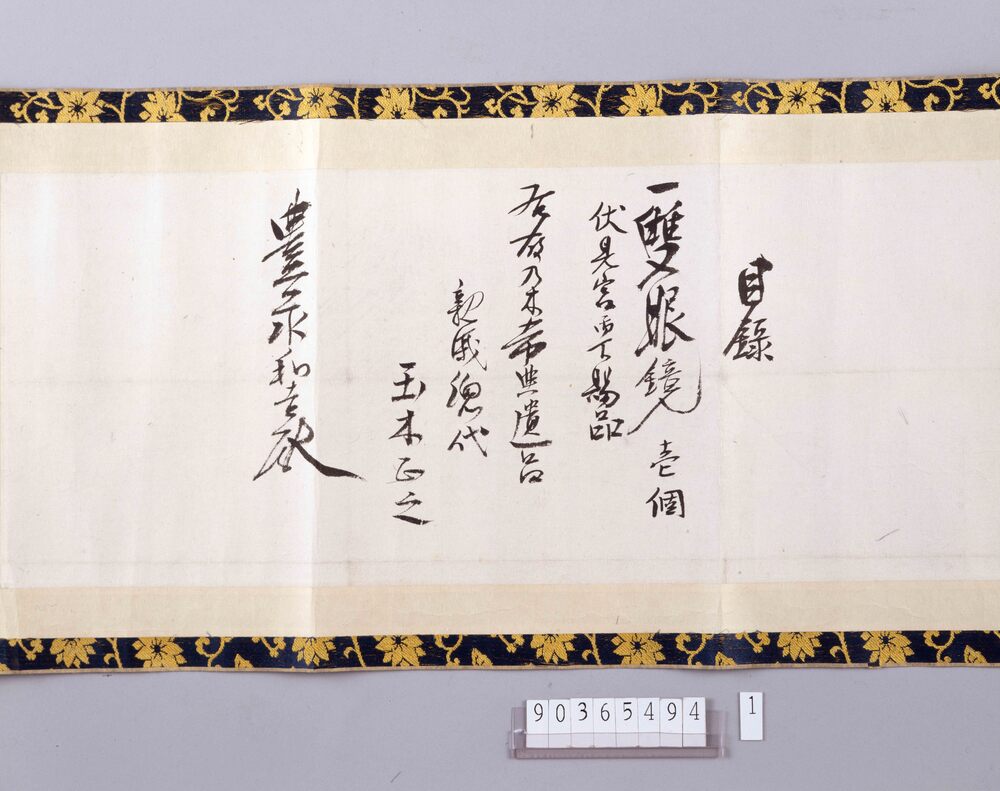 目錄
一雙眼鏡 壱個
伏見宮より賜品
右故乃木希典遺品
親戚總代
玉木正之
豊永和吉殿
90365494
1